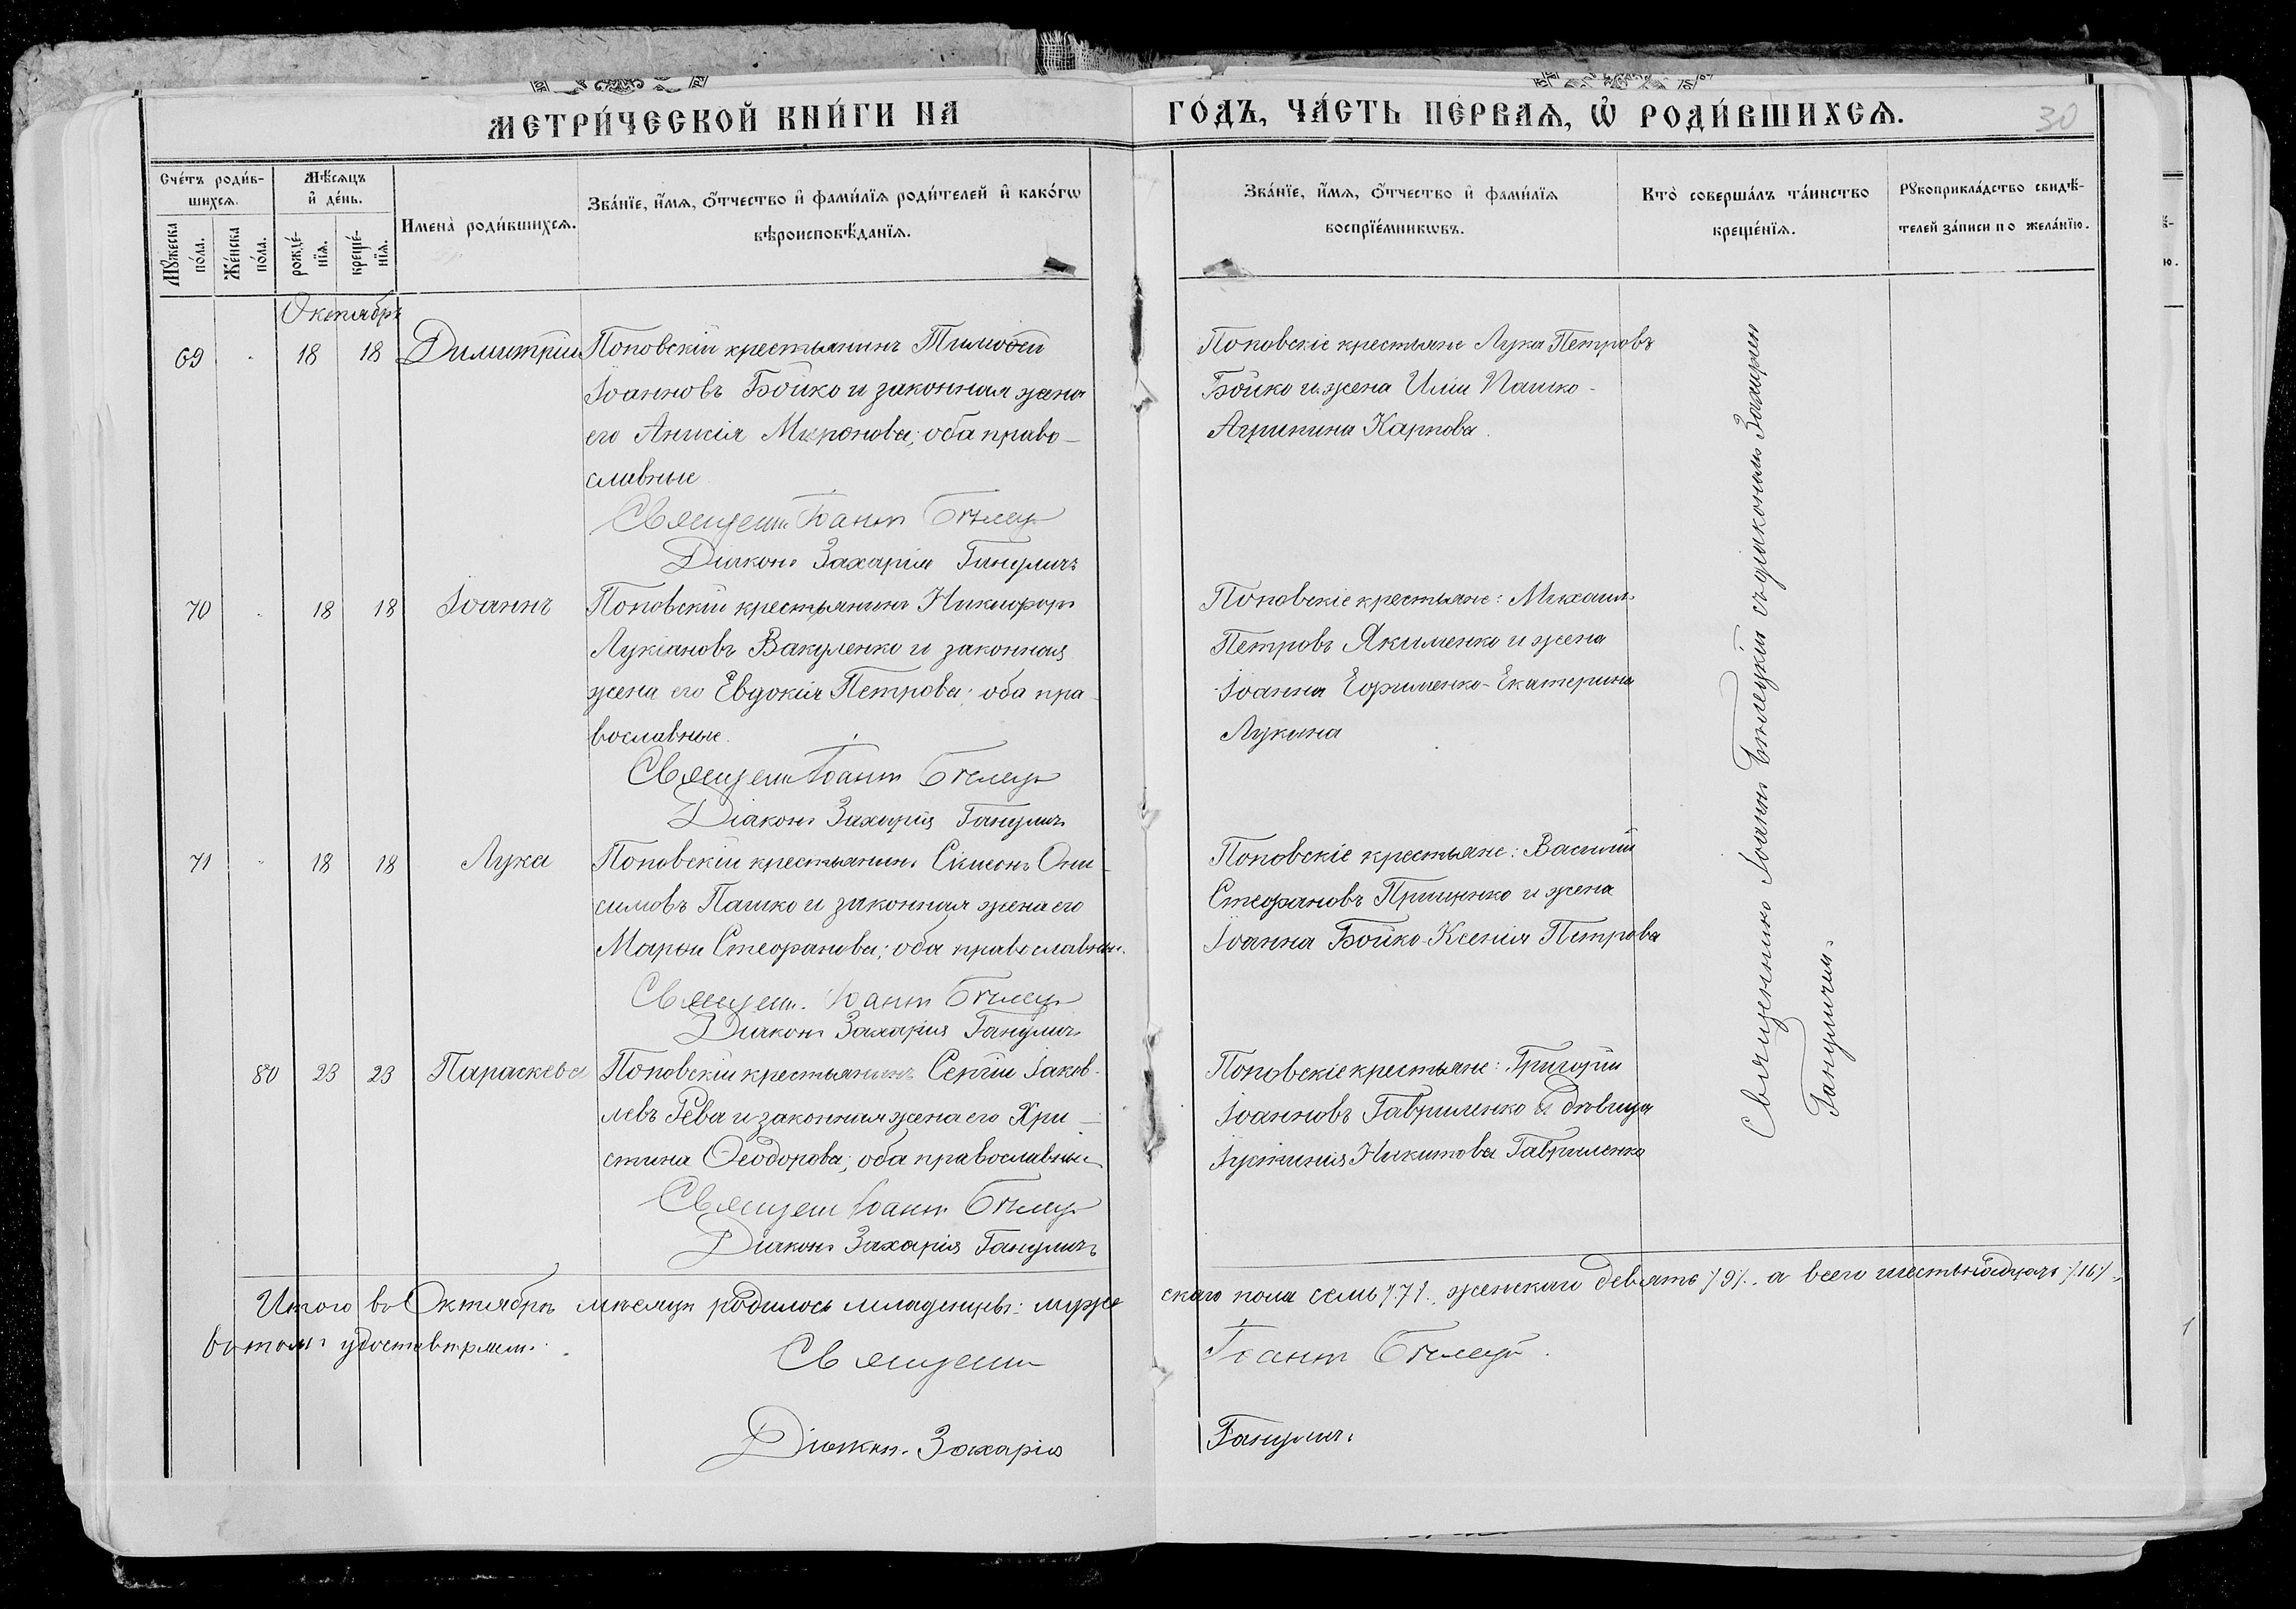 МЕТРИ́ЧЕСКОЙ КНИ́ГИ НА ГО́ДЪ, ЧА́СТЬ ПЕ́РВАѦ, Ѡ҆ РОДИ́ВШИХСѦ.
30
Сче́тъ роди́в-
шихсѧ.
Мѣ́сѧцъ
и҆ де́нь.
Мꙋ́жеска
по́ла.
Же́нска
по́ла.
рожде́-
нїѧ.
креще́-
нїѧ.
Имена̀ роди́вшихсѧ.
Зва́нїе, и҆́мѧ, ѻ҆́тчество и҆ фами́лїѧ роди́телей и҆ како́гѡ
вѣроисповѣ́данїѧ.
Зва́нїе, и҆́мѧ, ѻ҆́тчество и҆ фами́лїѧ
воспрїе́мникѡвъ.
Кто̀ соверша́лъ та́инство
креще́нїѧ.
Рꙋкоприкла́дство свидѣ́-
телей за́писи по жела́нїю.
Октябрь
69 18 18 Димитрій
Поповскій крестьянинъ Тимоѳей
Іоанновъ Бойко и законная жена
его Анисія Миронова; оба право-
славные
Священ. Іоаннъ Бѣлец
Діаконъ Захарія Ганулич
Поповскіе крестьяне Лука Петровъ
Бойко и жена Иліи Пашко -
Агрипина Карпова.
70 18 18 Іоаннъ
Поповскій крестьянинъ Никифоръ
Лукіановъ Вакуленко и законная
жена его Евдокія Петрова; оба пра-
вославные.
Священ Іоаннъ Бѣлец
Діаконъ Захарія Ганулич
Поповскіе крестьяне: Михаил
Петровъ Якименко и жена
Іоанна Ефименко - Екатерина
Лукина
71 18 18 Лука
Поповскій крестьянинъ Сімеонъ Они-
симовъ Пашко и законная жена его
Марѳа Стефанова; оба православны.
Священ. Іоаннъ Бѣлец
Діаконъ Захарія Ганулич
Поповскіе крестьяне: Василій
Стефановъ Прищенко и жена
Іоанна Бойко - Ксенія Петрова
80 23 23 Параскева
Поповскій крестьянинъ Сергій Іаков-
левъ Рева и законная жена его Хри-
стина Ѳеодорова; оба православные
Священ Іоаннъ Бѣлец
Діаконъ Захарія Ганулич
Поповскіе крестьяне: Григорій
Іоанновъ Гавриленко и дѣвица
Іустинія Никитова Гавриленко
Священникъ Іоаннъ Бѣлецкій съ діакономъ Захаріею
Гануличемъ.
Итого въ Октябрѣ мѣсяцѣ родилось младенцевъ: мужескаго пола семь /.7./, женскаго девять /.9./, а всего шестьнадцать /.16./,
въ томъ удостовѣряемъ:
Священ Іоаннъ Бѣлец
Діаконъ Захарія Ганулич